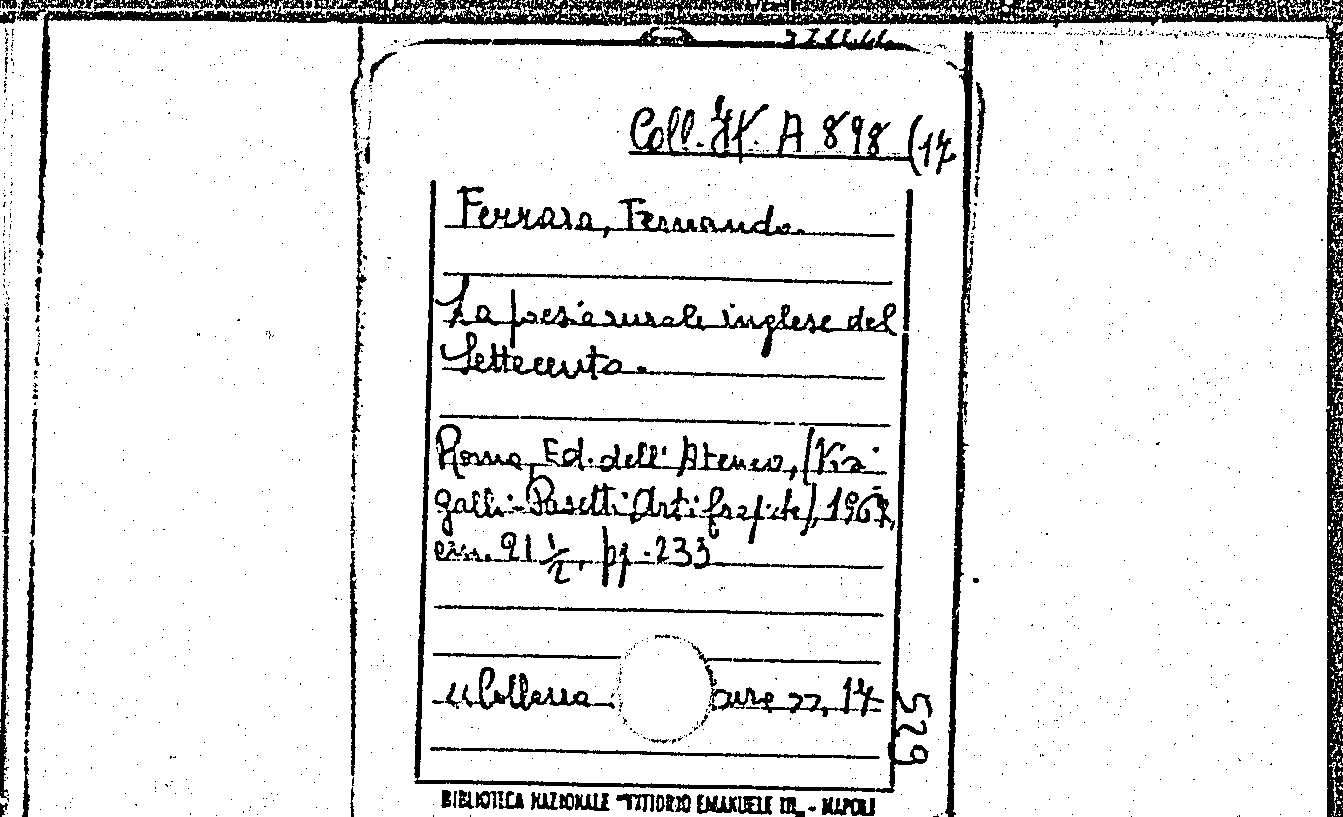 Coll. It. A 898 (17
Ferrara, Fernando.
La poesia rurale inglese del
Settecento.
Roma, Ed. dell' Ateneo, (Vi
galli-Pasetti Arti grafiche), 1967,
cm. 21 1/2, pp. 233
«Collana 17
529
BIBLIOTECA NAZIONALE "VITTORIO EMANUELE III„ - NAPOLI